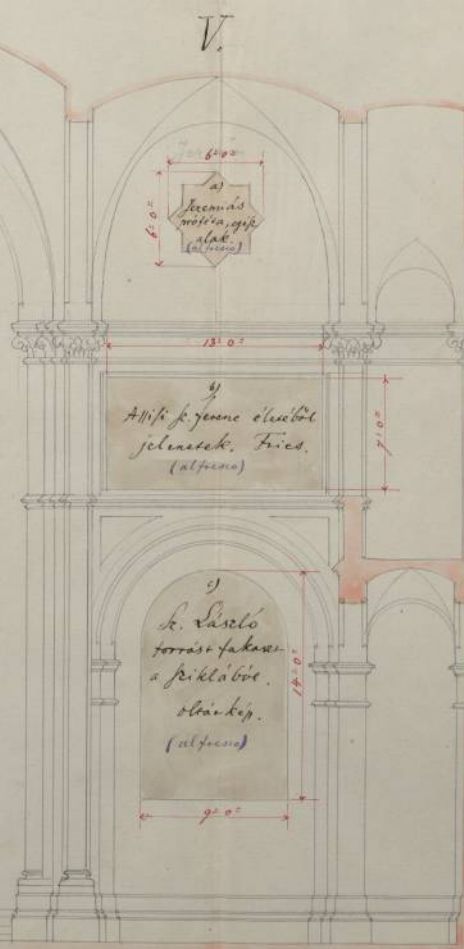 V.
6'-0"
a)
Jeremiás
próféta, egész
alak.
(alfresco)
6'-0"
13'-0"
b)
Assisi sz. ferenc életéből
jelenetek. Fries.
(alfresco)
7'-0"
c)
Sz. László
forrást fakaszt
a sziklából.
oltárkép.
(alfresco)
14'-0"
9'-0"